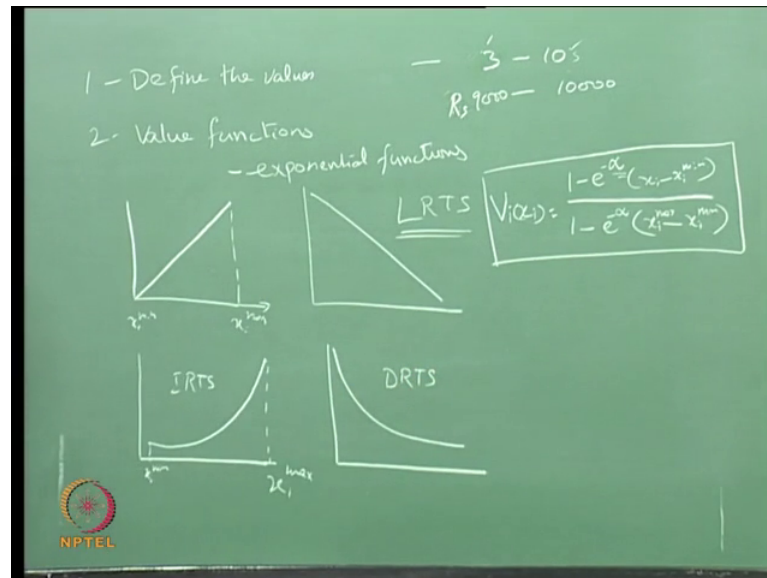 1 - Define the values — 3 - 10's
Rs 9000 — 10000
2. Value functions
- exponential functions
LRTS
Vi(xi) = 1 - e^-α (xi - xi^min) / 1 - e^-α (xi^max - xi^min)
xi^min xi^max
IRTS DRTS
xi^min xi^max
NPTEL